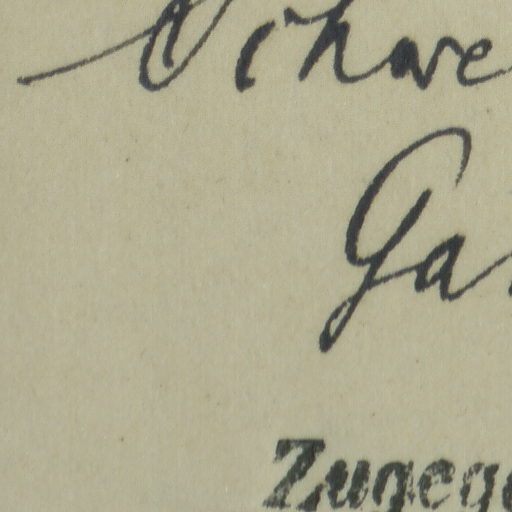 Schwe
Ga
Zugege